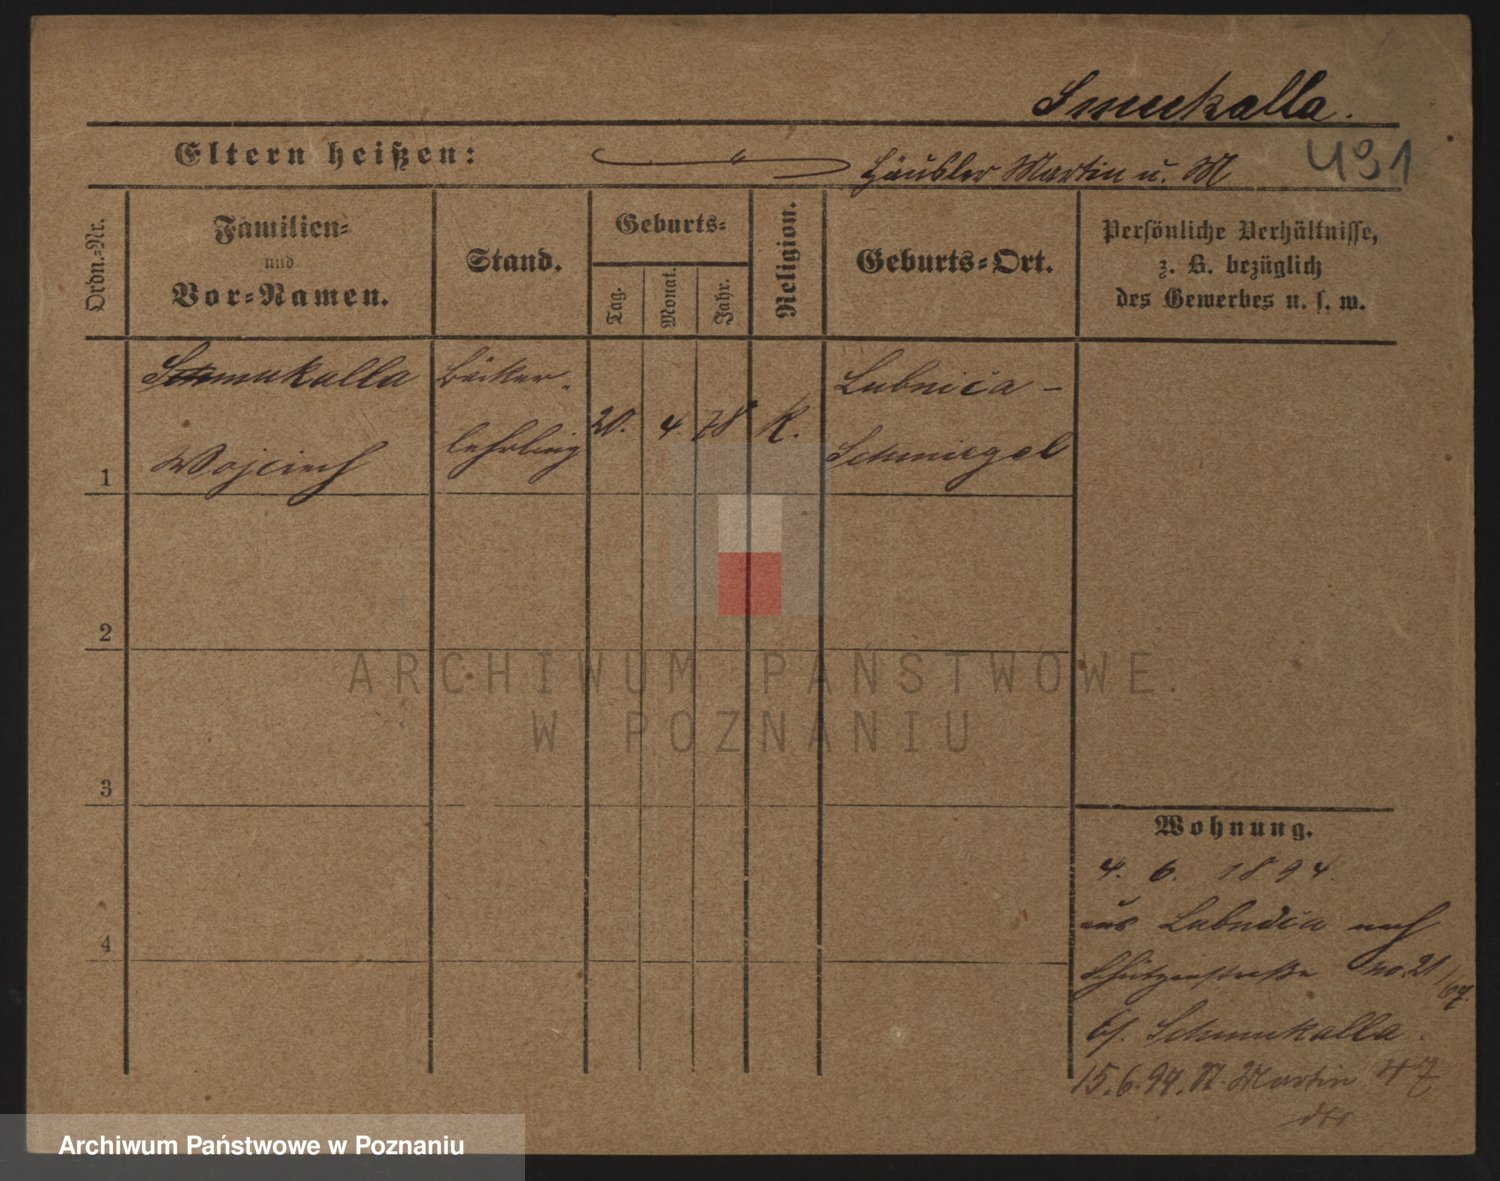 Smukalla.
Eltern heißen:
Häusler Martin u. M
491
Ordn.-Nr.
Familien-
und
Vor-Namen.
Stand.
Geburts-
Tag.
Monat.
Jahr.
Religion.
Geburts-Ort.
Persönliche Verhältnisse,
z. B. bezüglich
des Gewerbes u. s. w.
Schmukalla
Wojciech
Bäcker-
lehrling
20. 4. 78 K.
Lubnica -
Schmiegel
1
2
3
4
Wohnung.
4. 6. 1894.
aus Lubnica nach
Schützenstraße no. 21/67.
bj. Schmukalla.
15.6.94. St. Martin 47
ARCHIWUM PAŃSTWOWE
W POZNANIU
Archiwum Państwowe w Poznaniu